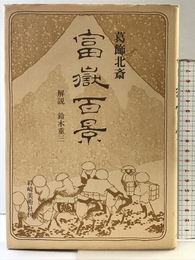 葛飾北斎
富嶽百景
解説 鈴木重三
岩崎美術社